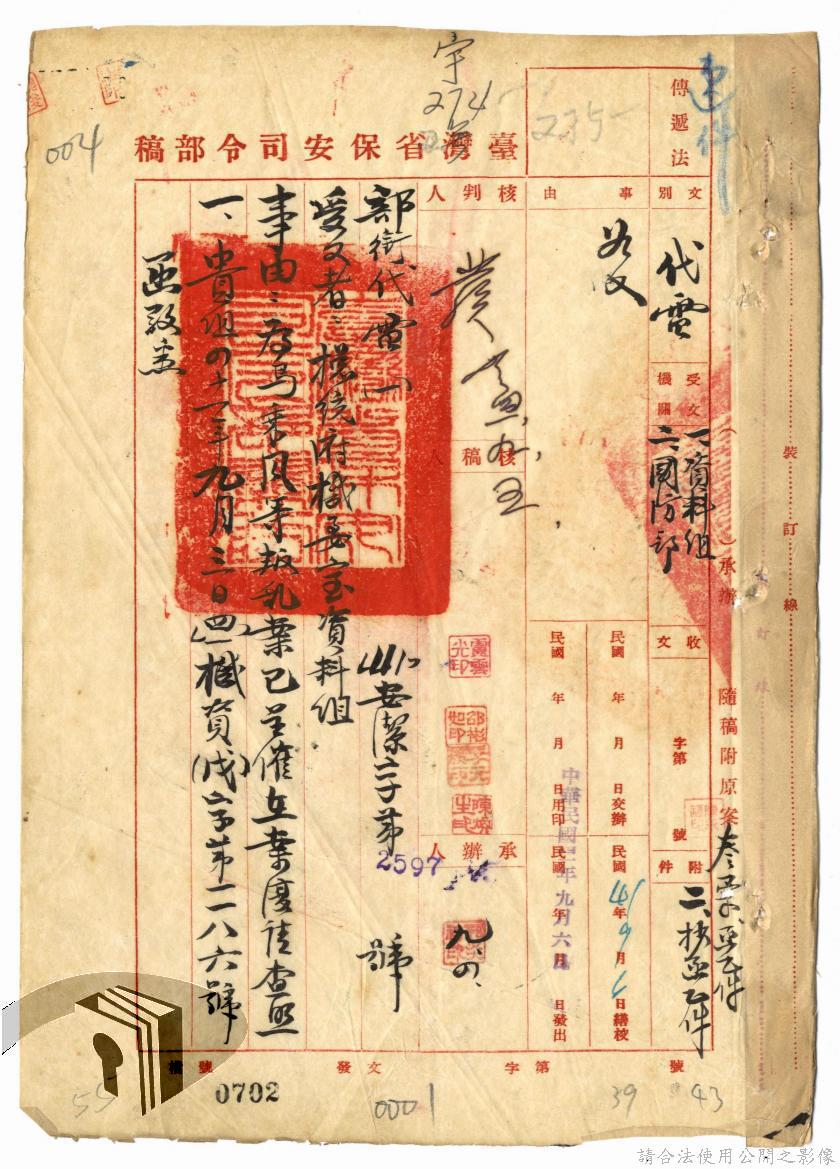 速件
傳遞法
宇
274
235
004
臺灣省保安司令部稿
文別
代電
受文機關
一、資料組
二、國防部
收文
字第 號
附件
二、抄函乙件
承辦 隨稿附原案
裝訂線
事由
民國 年 月 日交辦
民國41年9月6日繕校
民國 年 月 日用印
民國 年 月 日發出
中華民國 年九月六
核判人
核稿人
承辦人
九、四、
部銜代電(一)
(41)安潔字第2597號
受文者:總統府機要室資料組
事由:為馬乘風等叛亂案已呈催在案復請查照
一、貴組四十一年九月三日(四一)機資(戌)字第二八六號
函敬悉
號 第 字 發文 檔號
0702
0001
39
43
55
請合法使用公開之影像